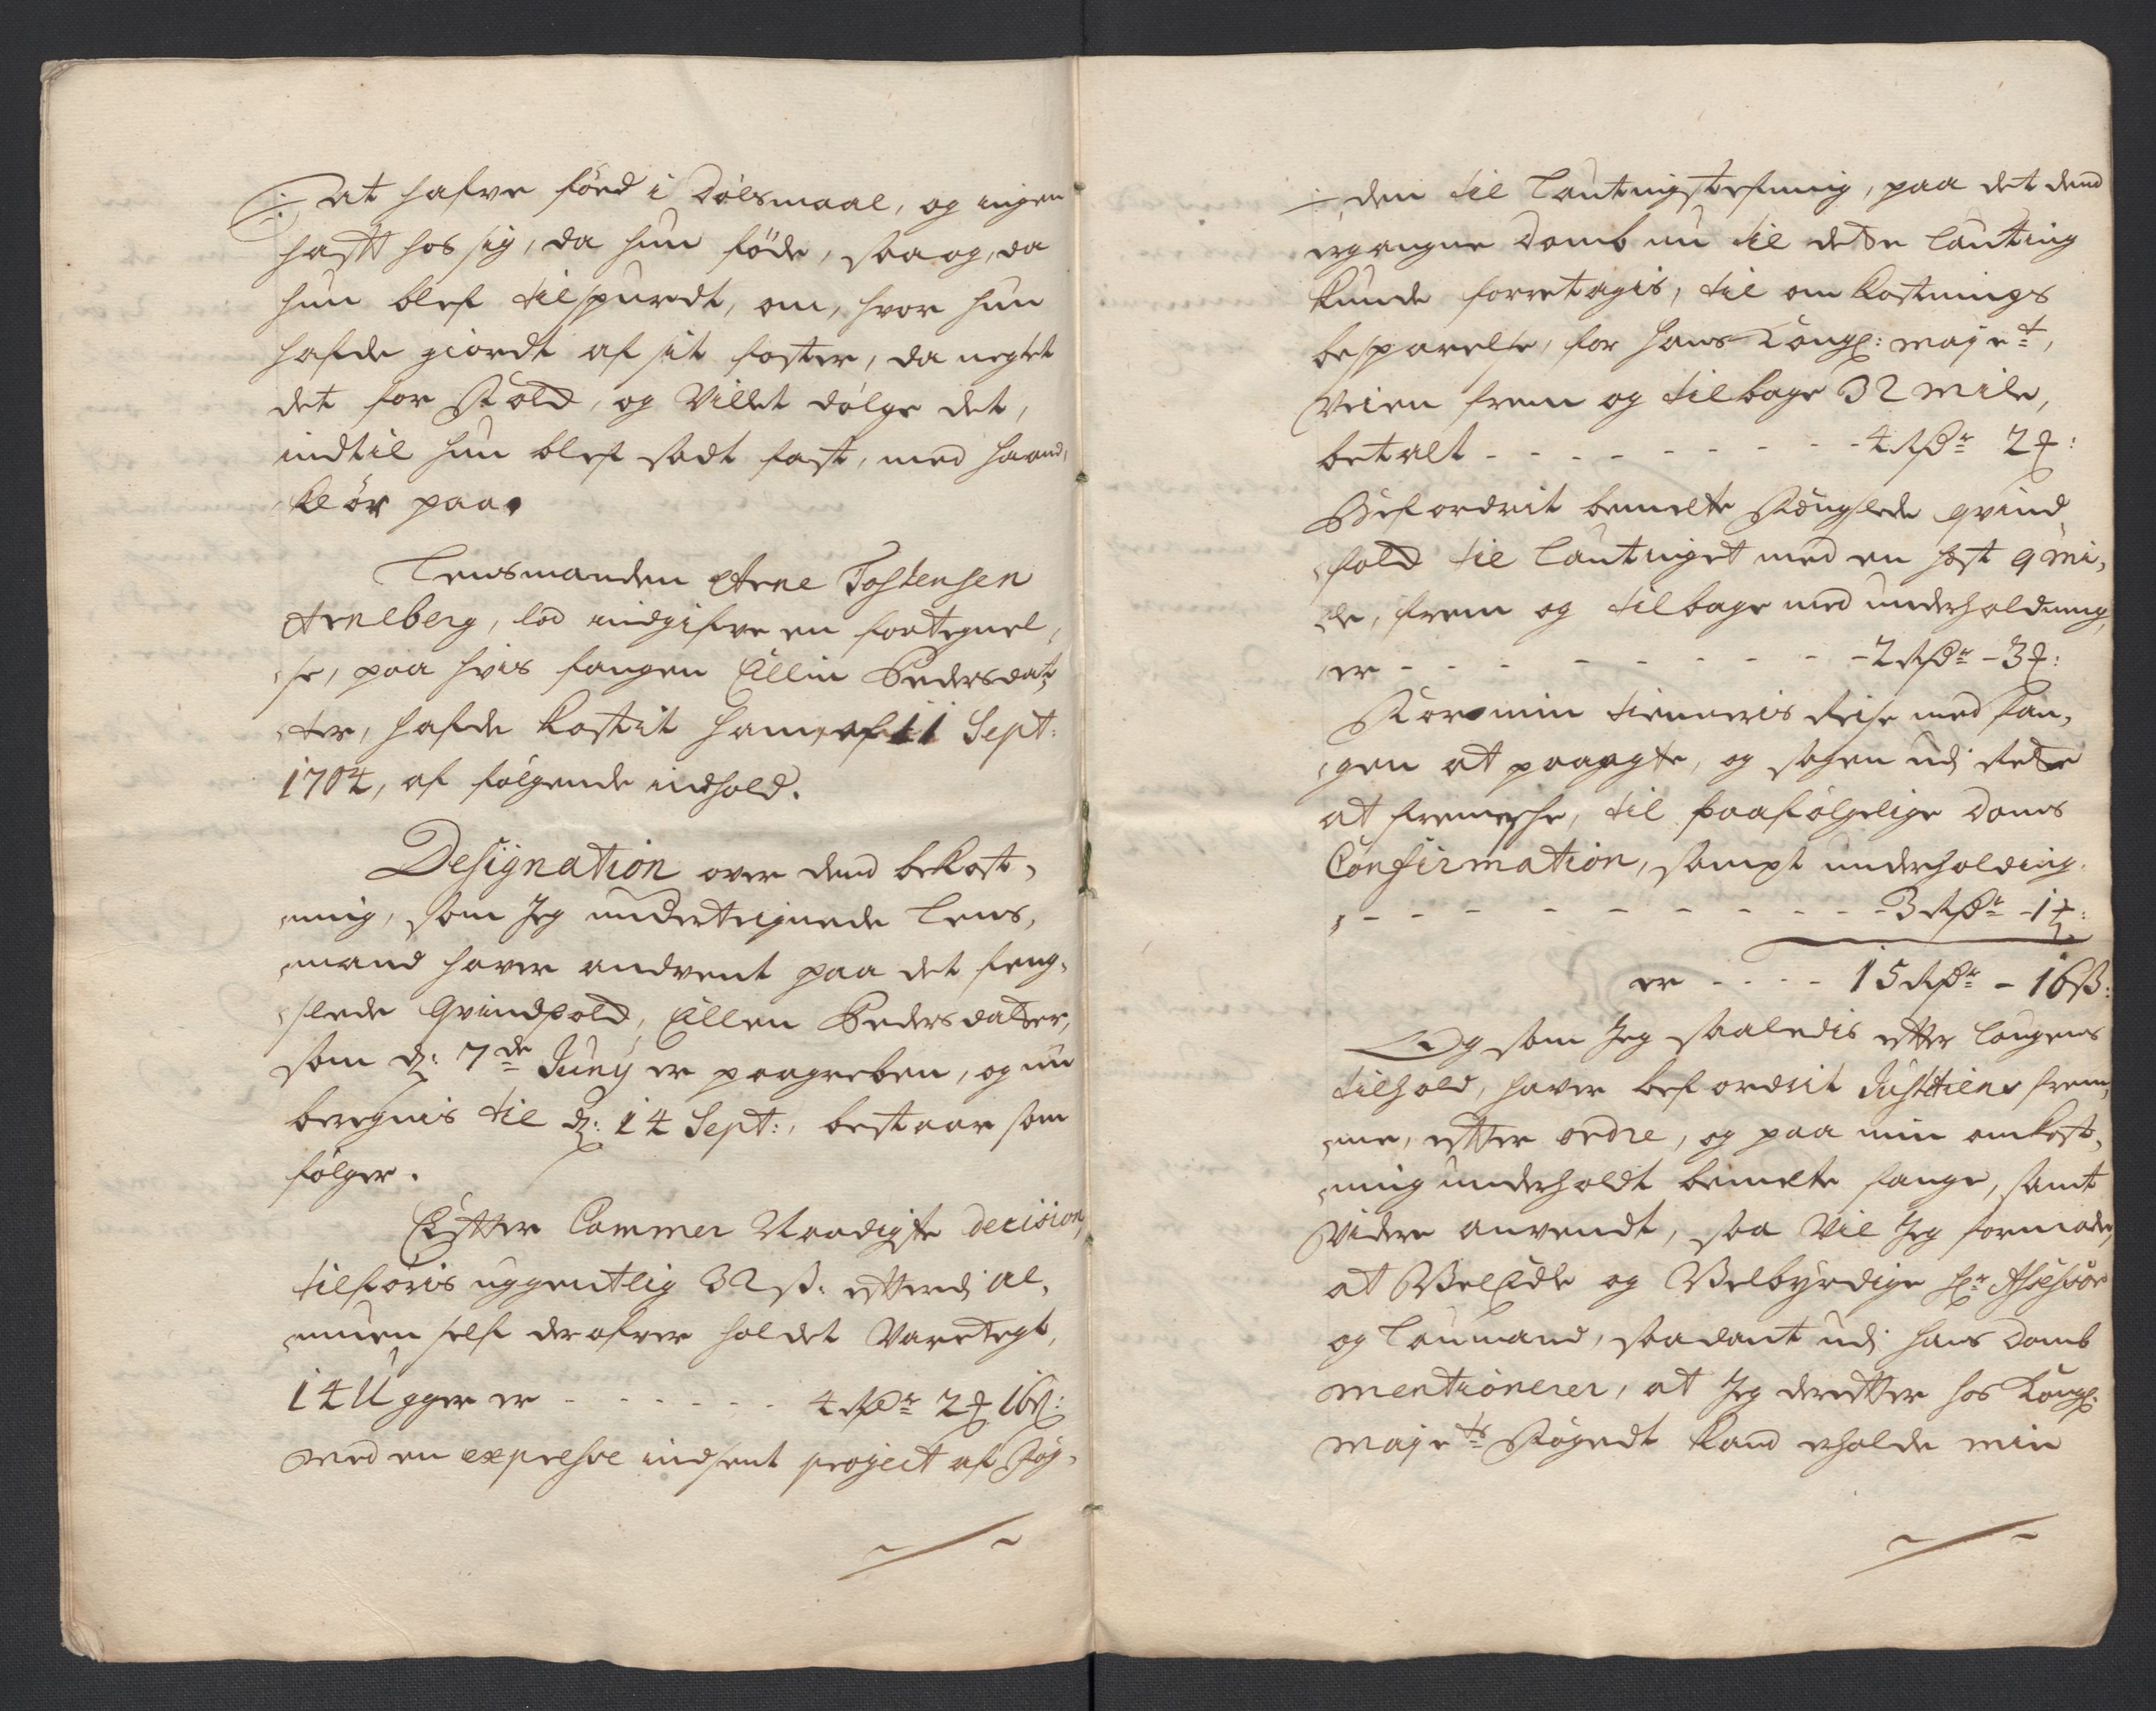 At hafve föed i Dölsmaal, og ingen
hafft hos sig, da hun föde, saa og, da
hun blef tilspurdt, om, hvor hun
hafde giordt af sit foster, da negtet
det for Skold, og Villet dölge det,
indtil hun blef sadt fast, med haand,
kl ör paa.
Lensmanden Arne Tostensen
Arnlberg, lod indgifve en fortegnel,
se, paa hvis fangen Ellin Pedersdat,
ter, hafde kostit ham, af 11 Sept:
1704, af fölgende indhold.
Designation over dend bekost,
ning, som Jeg undertegnede Lens,
mand haver andvent paa det feng,
slede Qvindfold, Ellen Pedersdatter,
som d: 7de Juny er paagreben, og nu
beregnis til d: 14 Sept:, bestaar som
fölger.
Effter Cammer Raadigste decision,
tilföris uggentlig 32 s: effterdj al,
muen self derofver holdet Varetegt,
14 Ugger er - - - - - - 4 Rdr 2 ₰ 16 s:
med en expresse indsent project af Fog,
den til Lautingstefning, paa det dend
ergangne Domb nu til dette Lauting
kunde foretagis, til omkostnings
besparelse, for hans Kongl: Majet,
Veien frem og tilbage 32 Mile,
betalt - - - - - - - - - 4 Rdr 2 ₰:
Befordrit bemelte fengslede qvind,
fold til Lautinget med en hest 9 Mi,
le, frem og tilbage med underholdning,
er - - - - - - - - - - 2 Rdr - 3 ₰:
For min tienneris Reise med fan,
gen at paaagte, og sagen udj Rette
at fremeske, til paafölgelige Doms
Confirmation, sampt underholding.
- - - - - - - - - - - 3 Rdr - 1 ₰:
er - - - - 15 Rdr - 16 s:
Og som Jeg saaledis effter Laugens
tilhold, haver befordrit Justitiens frem,
me, effter ordre, og paa min omkost,
ning underholdt bemelte fange, samt
Videre anvendt, saa Vil Jeg formode,
at VelEdle og Velbyrdige Hr Assessor
og Laumand, saadant udj hans Domb
mentionerer, at Jeg dereffter hos Kongl:
Majets Fogedt kand erholde min